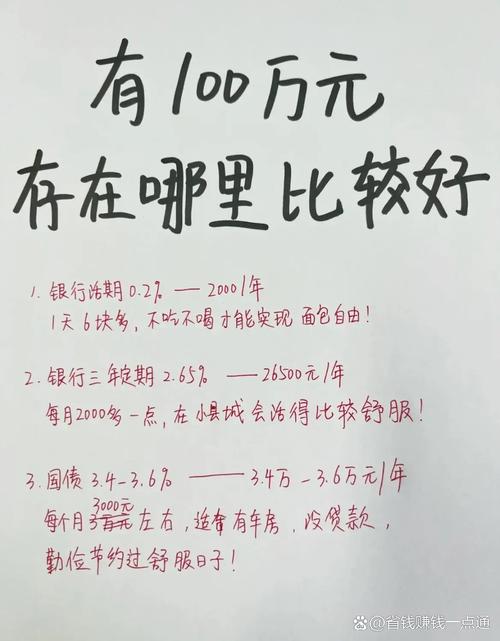 有100万元
存在哪里比较好
1. 银行活期0.2% — 2000/年
1天6块多，不吃不喝才能实现面包自由！
2. 银行三年定期2.65% — 26500元/年
每月2000多一点，在小县城会活得比较舒服！
3. 国债3.4-3.6% — 3.4万-3.6万元/年
3000元
每个月左右，适宜有车房，没贷款，
勤俭节约过舒服日子！
@省钱赚钱一点通